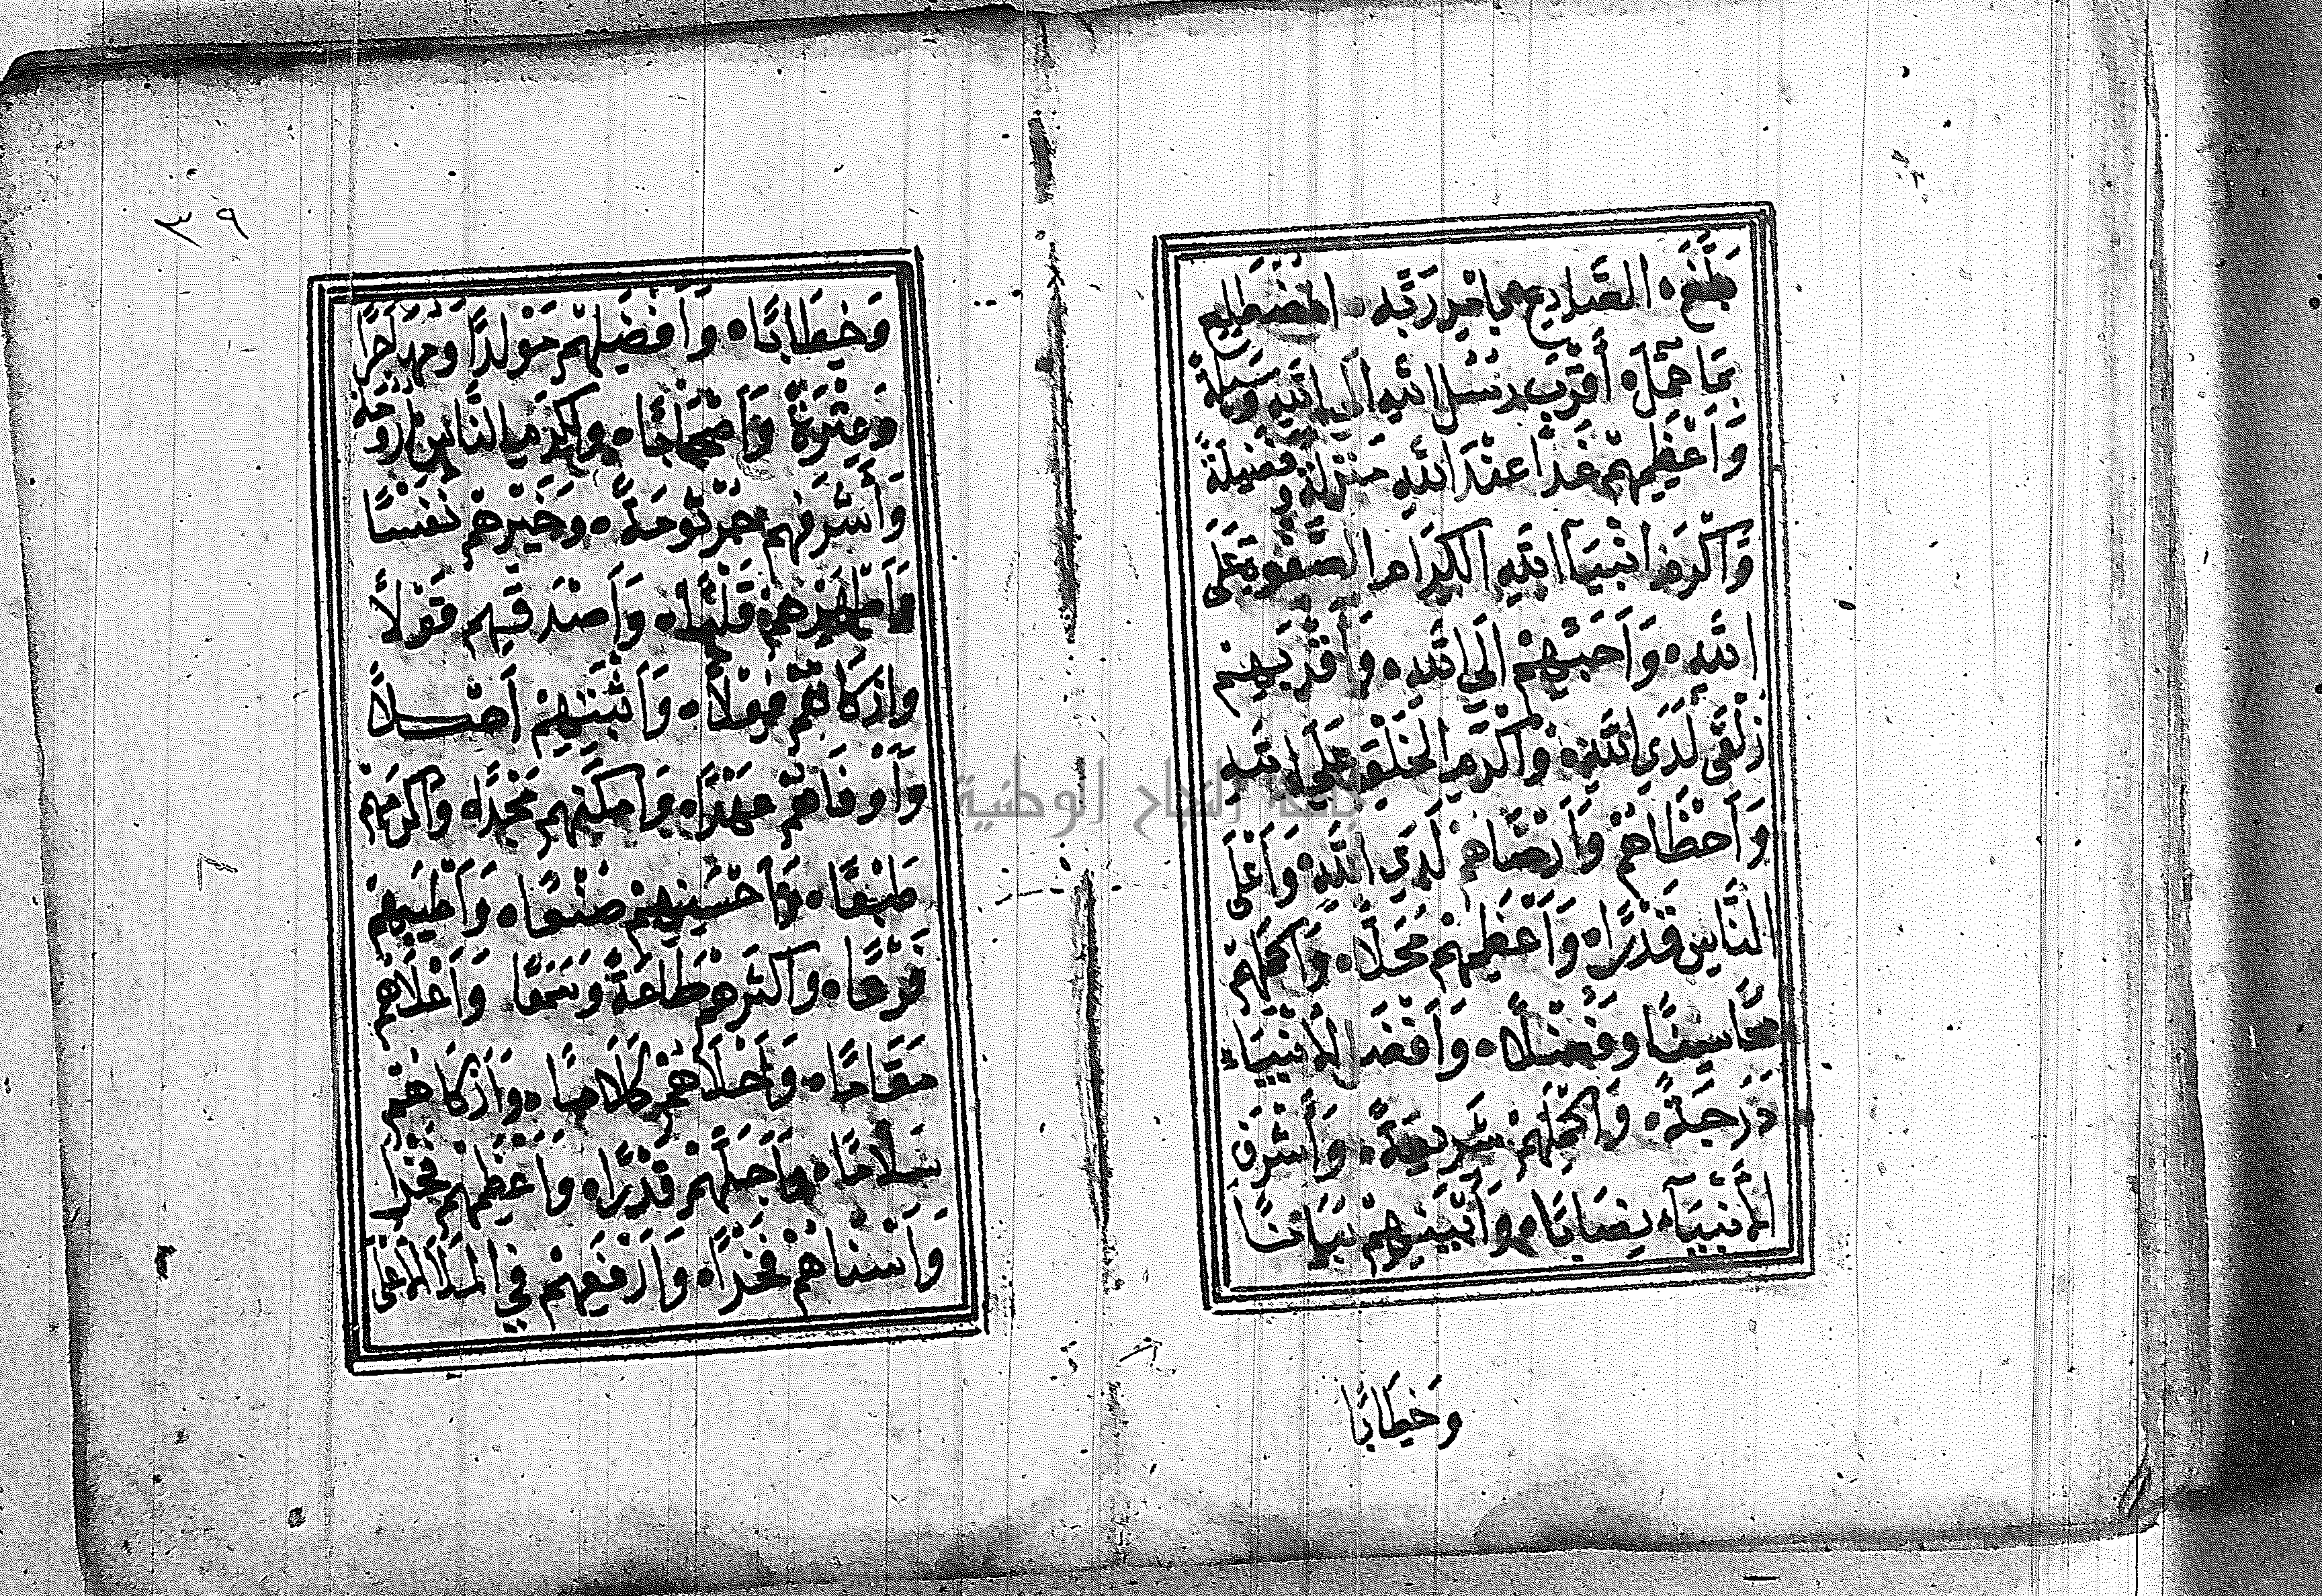 بَلَّغَ۰ الصَّادِعِ بِاَمْرِ رَبِّهِ۰ المُضْطَلِعِ
بِمَا حُمِّلَ۰ أَقْرَبِ رُسُلِ اللهِ اِلَى اللهِ وَسِيلَةً
وَاَعْظَمِهِمْ غَدًا عِنْدَ اللهِ مَنْزِلَةً وَفَضِيلَةً
وَاَكْرَمِ اَنْبِيَآءِ اللهِ الكِرَامِ الصَّفْوَةِ عَلَى
اللهِ۰ وَاَحَبِّهِمْ اِلَى اللهِ۰ وَاَقْرَبِهِمْ
زُلْفَى لَدَى اللهِ۰ وَاَكْرَمِ الخَلْقِ عَلَى اللهِ
وَاَحْظَاهُمْ وَاَرْضَاهُمْ لَدَى اللهِ۰ وَاَعْلَى
النَّاسِ قَدْرًا۰ وَاَعْظَمِهِمْ مَحَلًّا۰ وَاَكْمَلِهِمْ
مَحَاسِنًا وَفَضْلًا۰ وَاَفْضَلِ الأَنْبِيَاءِ
دَرَجَةً۰ وَاَكْمَلِهِمْ شَرِيعَةً۰ وَاَشْرَفِ
الأَنْبِيَآءِ نِصَابًا۰ وَاَبْيَنِهِمْ بَيَانًا
وَخِطَابًا
٣٩
وَخِطَابًا۰ وَاَفْضَلِهِمْ مَوْلِدًا وَمُهَاجَرًا
وَعِتْرَةً وَاَصْحَابًا۰ وَاَكْرَمِ النَّاسِ اَرُومَةً
وَاَشْرَفِهِمْ جُرْثُومَةً۰ وَخَيْرِهِمْ نَفْسًا
وَاَطْهَرِهِمْ قَلْبًا۰ وَاَصْدَقِهِمْ قَوْلاً
وَاَزْكَاهُمْ فِعْلاً۰ وَاَثْبَتِهِمْ اَصْلاً
وَاَوْفَاهُمْ عَهْدًا۰ وَاَمْكَنِهِمْ مَجْدًا۰ وَاَكْرَمِهِمْ
طَبْعًا۰ وَاَحْسَنِهِمْ صُنْعًا۰ وَاَطْيَبِهِمْ
فَرْعًا۰ وَاَكْثَرِهِمْ طَاعَةً وَسَمْعًا وَاَعْلَاهُمْ
مَقَامًا۰ وَاَحْلَاهُمْ كَلَامًا۰ وَاَزْكَاهُمْ
سَلَامًا۰ وَاَجَلِّهِمْ قَدْرًا۰ وَاَعْظَمِهِمْ فَخْرًا
وَاَسْنَاهُمْ فَخْرًا۰ وَاَرْفَعِهِمْ فِي المَلَأِ الأَعْلَى
جامعة النجاح الوطنية